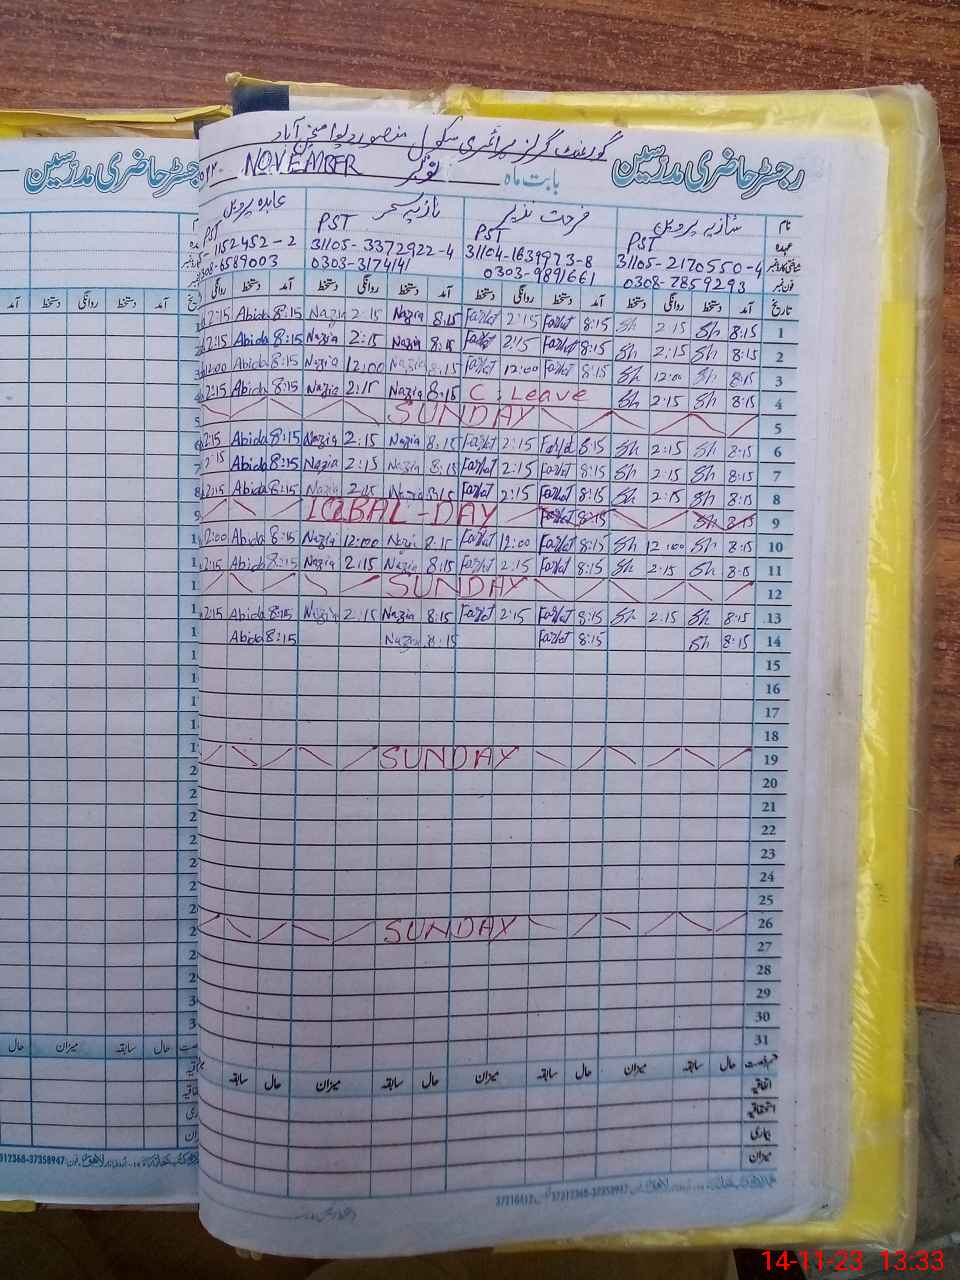 گورنمنٹ گرلز پرائمری سکول منصور دیوا منچن آباد
رجسٹر حاضری مدرسین
بابت ماہ نومبر NOVEMBER
رجسٹر حاضری مدرسین
نام شازیہ پروین فرحت نذیر نازیہ سحر عابدہ پروین
عہدہ PST PST PST PST
31105-2170550-4 31104-1639973-8 31105-3372922-4 1152452-2
فون نمبر 0308-7859293 0303-9891661 0303-3174141 308-6589003
تاریخ آمد دستخط روانگی دستخط آمد دستخط روانگی دستخط آمد دستخط روانگی دستخط آمد دستخط روانگی
1 8:15 Sh 2:15 Sh 8:15 Farhat 2:15 Farhat 8:15 Nazia 2:15 Nazia 8:15 Abida 2:15
2 8:15 Sh 2:15 Sh 8:15 Farhat 2:15 Farhat 8:15 Nazia 2:15 Nazia 8:15 Abida 2:15
3 8:15 Sh 12:00 Sh 8:15 Farhat 12:00 Farhat 8:15 Nazia 12:00 Nazia 8:15 Abida 12:00
4 8:15 Sh 2:15 Sh C. Leave 8:15 Nazia 2:15 Nazia 8:15 Abida 2:15
5 SUNDAY
6 8:15 Sh 2:15 Sh 8:15 Farhat 2:15 Farhat 8:15 Nazia 2:15 Nazia 8:15 Abida 2:15
7 8:15 Sh 2:15 Sh 8:15 Farhat 2:15 Farhat 8:15 Nazia 2:15 Nazia 8:15 Abida 2:15
8 8:15 Sh 2:15 Sh 8:15 Farhat 2:15 Farhat 8:15 Nazia 2:15 Nazia 8:15 Abida 2:15
9 8:15 Sh 8:15 Farhat IQBAL-DAY
10 8:15 Sh 12:00 Sh 8:15 Farhat 12:00 Farhat 8:15 Nazia 12:00 Nazia 8:15 Abida 12:00
11 8:15 Sh 2:15 Sh 8:15 Farhat 2:15 Farhat 8:15 Nazia 2:15 Nazia 8:15 Abida 2:15
12 SUNDAY
13 8:15 Sh 2:15 Sh 8:15 Farhat 2:15 Farhat 8:15 Nazia 2:15 Nazia 8:15 Abida 2:15
14 8:15 Sh 8:15 Farhat 8:15 Nazia 8:15 Abida
15
16
17
18
19 SUNDAY
20
21
22
23
24
25
26 SUNDAY
27
28
29
30
31
حال سابقہ میزان حال سابقہ میزان حال سابقہ میزان حال سابقہ
اتفاقیہ
استحقاقیہ
بیماری
میزان
14-11-23 13:33